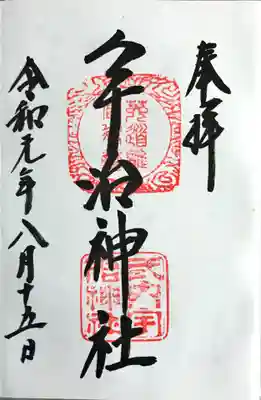 奉拝
宇治神社
令和元年八月十五日